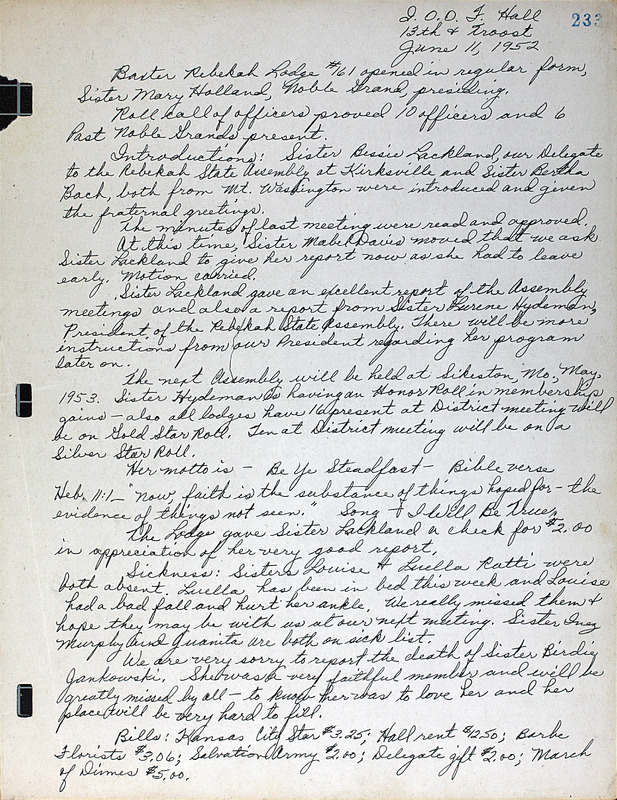 I.O.O.F. Hall
233
13th & Troost
June 11, 1952
Baxter Rebekah Lodge #161 opened in regular form,
Sister Mary Holland, Noble Grand, presiding.
Roll call of officers proved 10 officers and 6
Past Noble Grands present.
Introductions: Sister Bessie Lackland, our Delegate
to the Rebekah State Assembly at Kirksville and Sister Bertha
Bach, both from Mt. Washington were introduced and given
the fraternal greetings.
The minutes of last meeting were read and approved.
At this time, Sister Mabel Davis moved that we ask
Sister Lackland to give her report now as she had to leave
early. Motion carried.
Sister Lackland gave an excellent report of the Assembly
meetings and also a report from Sister Lurene Hydeman,
President of the Rebekah State Assembly. There will be more
instructions from our President regarding her program
later on.
The next Assembly will be held at Sikeston, Mo., May,
1953. Sister Hydeman is having an Honor Roll in membership
gains - also all lodges have 16 present at District meeting will
be on Gold Star Roll. Ten at District meeting will be on a
Silver Star Roll.
Her motto is - Be Ye Steadfast - Bible verse
Heb. 11:1 - "Now, faith is the substance of things hoped for - the
evidence of things not seen." Song - I Will Be True.
The Lodge gave Sister Lackland a check for $2.00
in appreciation of her very good report.
Sickness: Sisters Louise & Luella Ratti were
both absent. Luella has been in bed this week and Louise
had a bad fall and hurt her ankle. We really missed them &
hope they may be with us at our next meeting. Sister Inez
Murphy and Juanita are both on sick list.
We are very sorry to report the death of Sister Birdie
Jankowski. She was a very faithful member and will be
greatly missed by all - to know her was to love her and her
place will be very hard to fill.
Bills: Kansas City Star $3.25; Hall rent $12.50; Barbe
Florists $3.06; Salvation Army $2.00; Delegate gift $2.00; March
of Dimes $5.00.